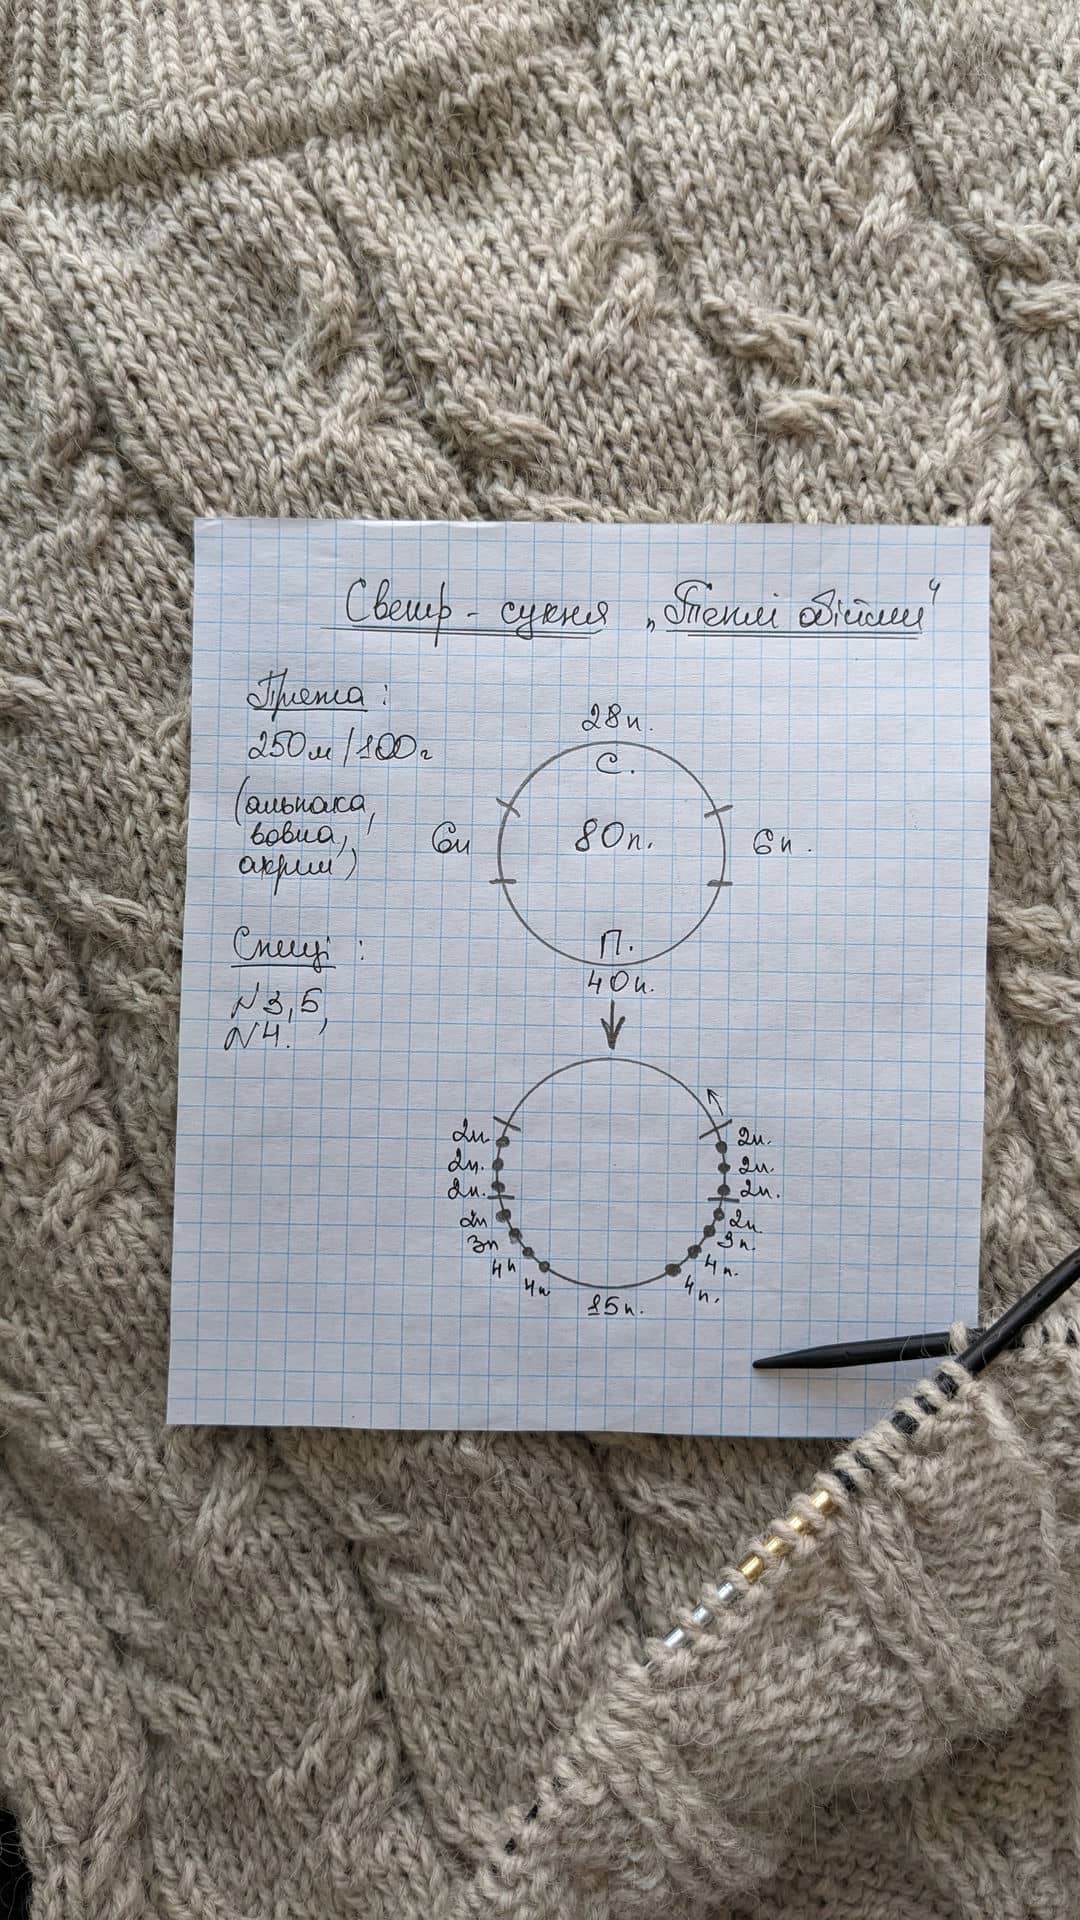 Светр - сукня „Теплі обійми“
Пряжа :
250м/100г
(альпака,
вовна,
акрил)
Спиці :
N3,5,
N4.
28п.
С.
6п
80п.
6п.
П.
40п.
2п.
2п.
2п.
2п
3п
4п
4п
15п.
2п.
2п.
2п.
2п.
3п.
4п.
4п.